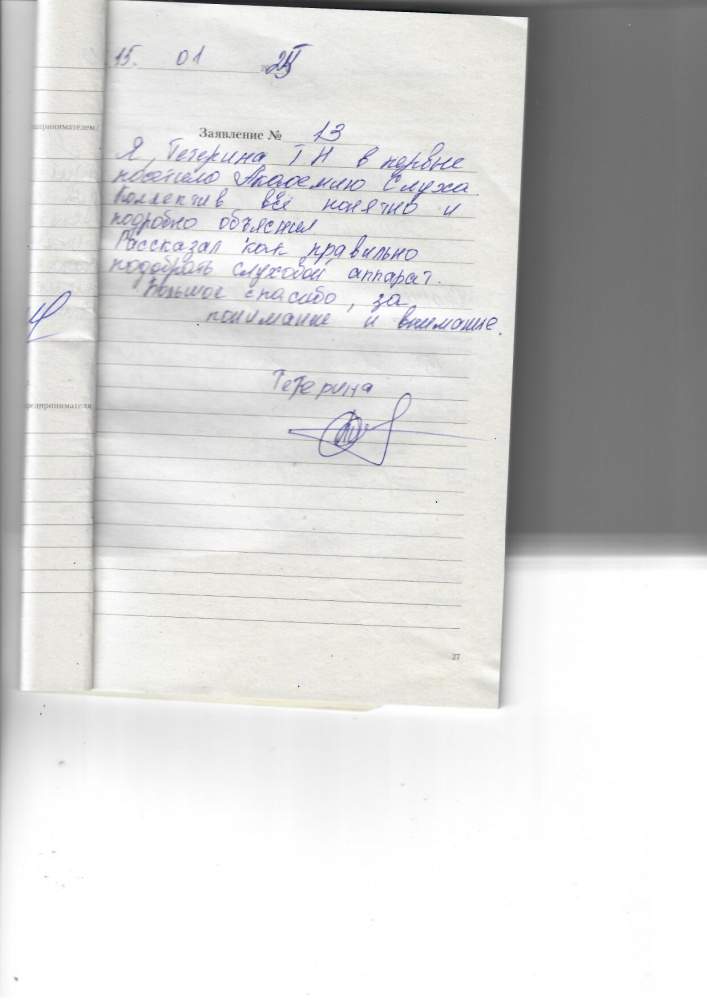 15. 01 25
дпринимателем/
Заявление № 13
Я, Тетерина Т Н в первые
посетило Академию Слуха
Коллектив всё понятно и
подробно объяснил
Рассказал как правильно
подобрать слуховой аппарат.
Большое спасибо, за
понимание и внимание.
Тетерина
едпринимателя
27